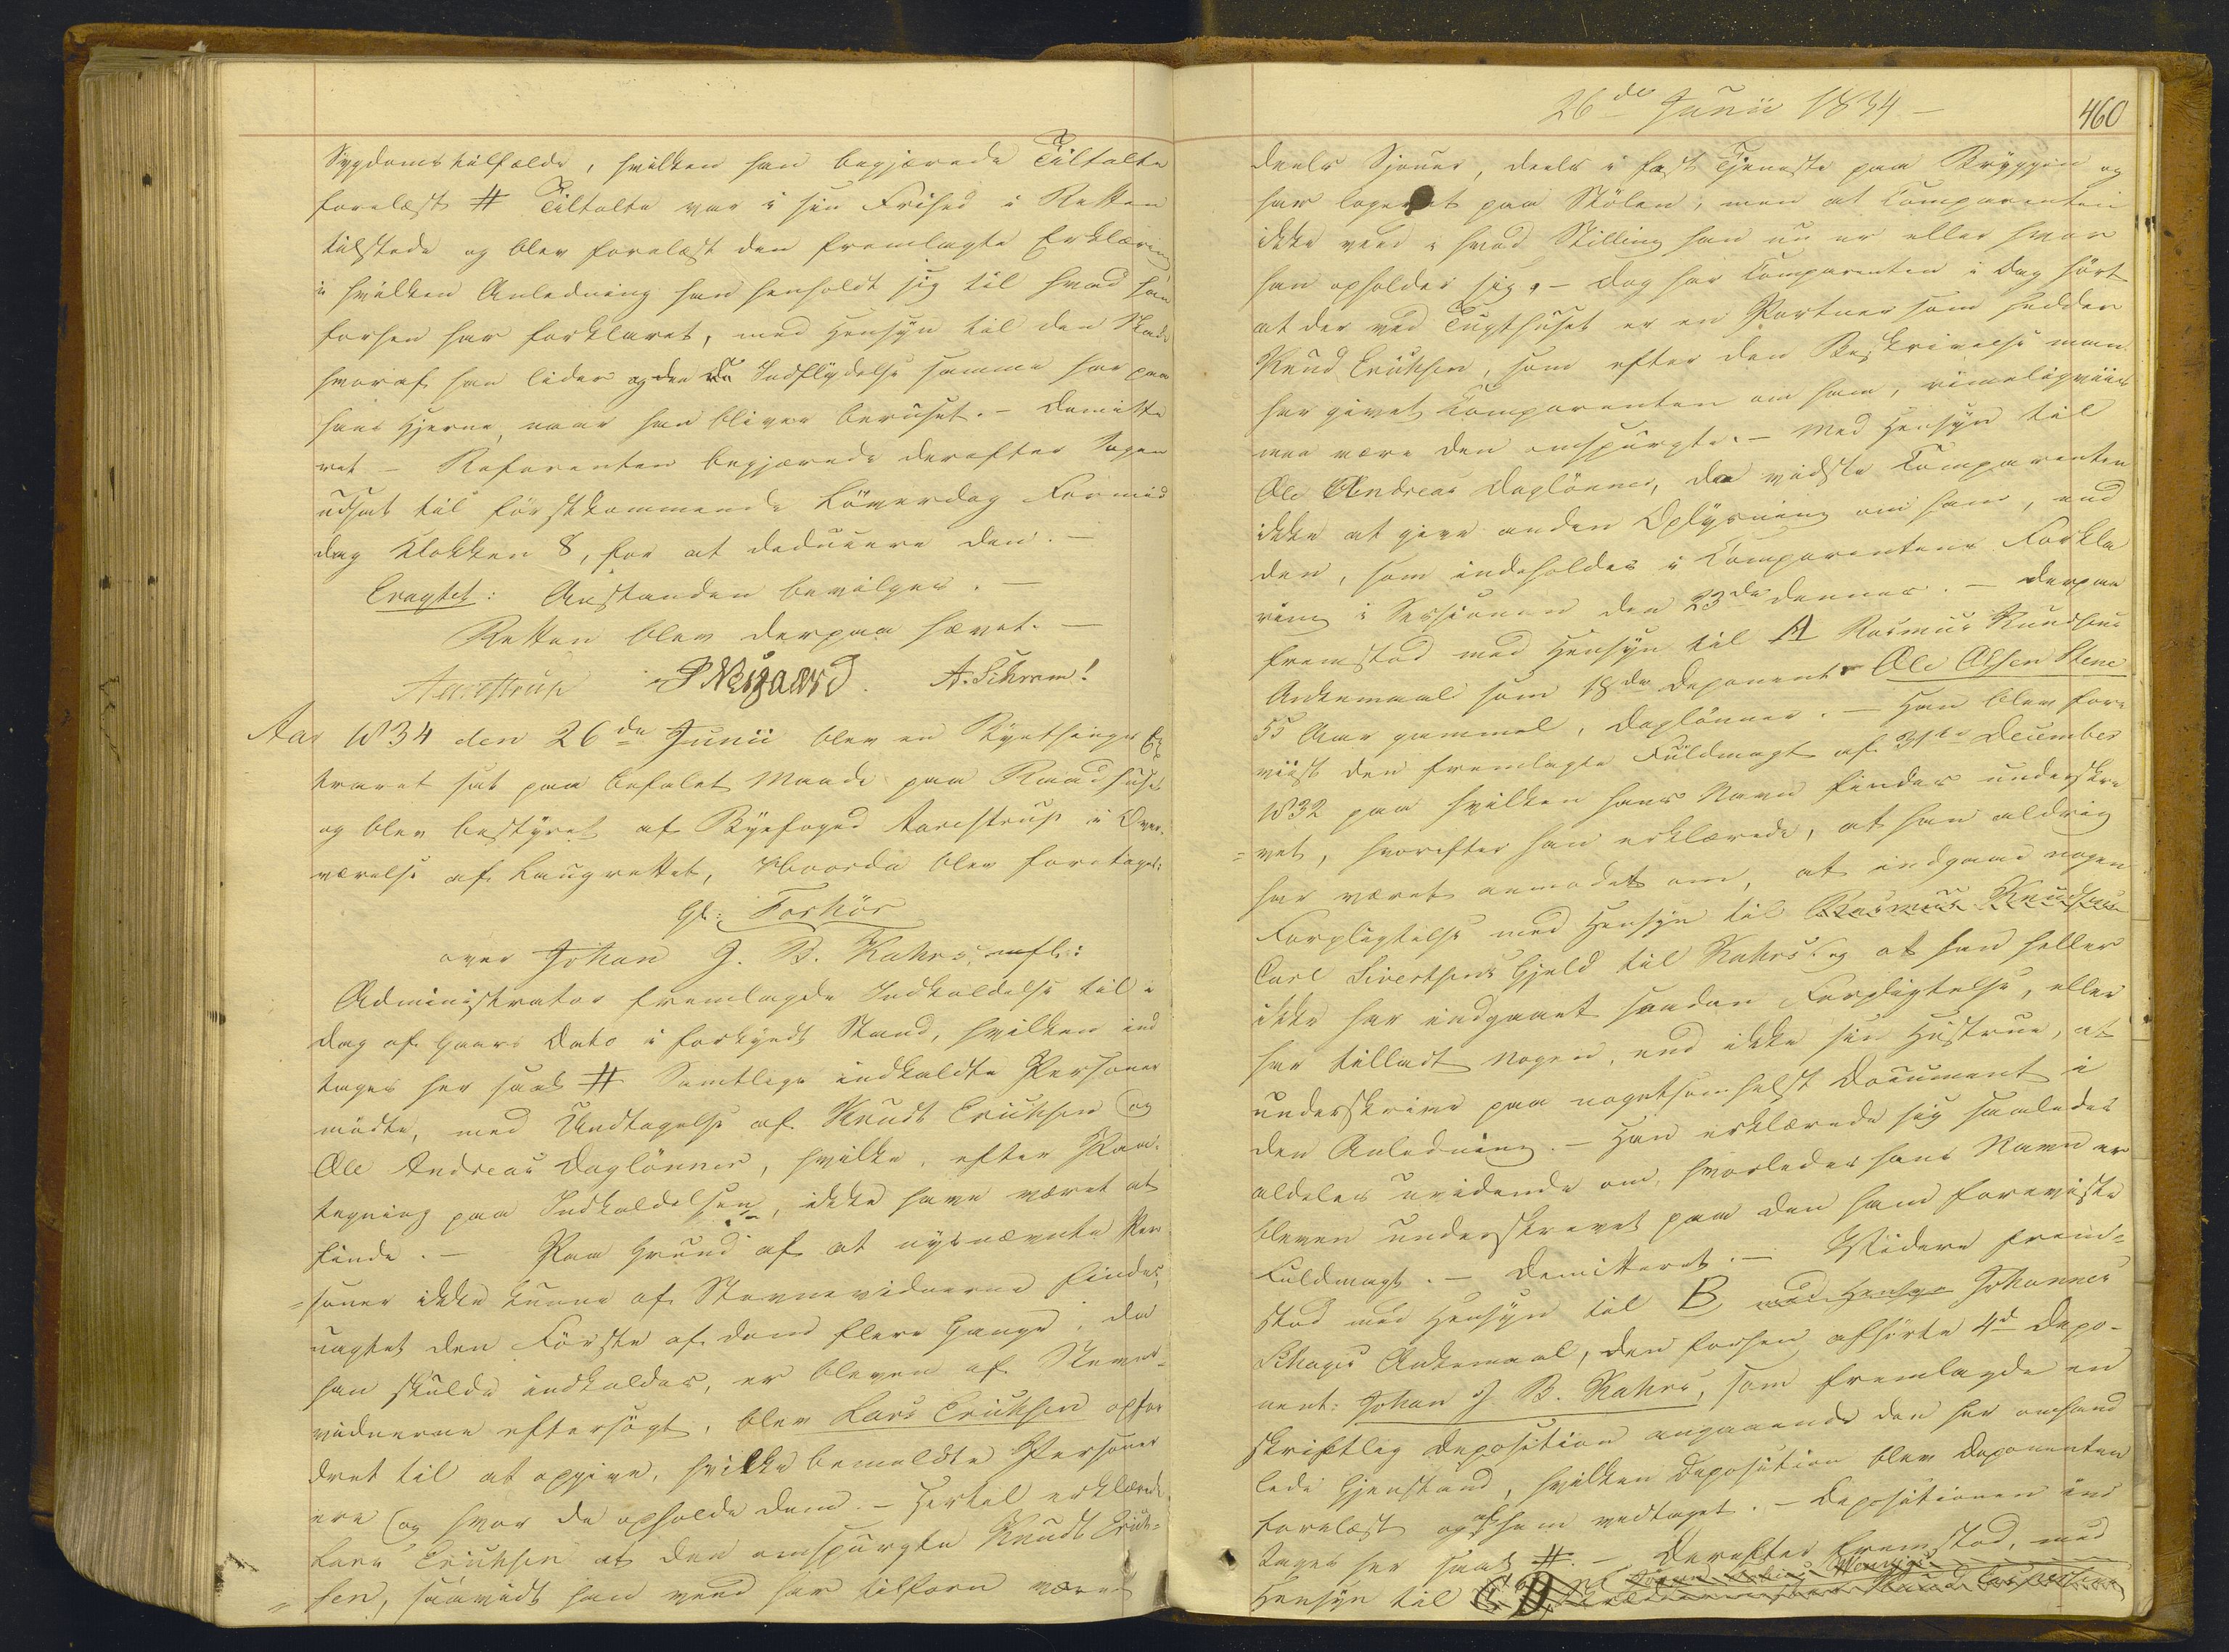 Sygdomstilfælde, hvilken han begjærede Tiltalte
forelæst # Tiltalte var i sin Frihed i Retten
tilstede og blev forelæst den fremlagte Erklæring
i hvilken Anledning han henholdt sig til hvad han
forhen har forklaret, med Hensyn til den Skade
hvoraf han lider og den Indflydelse samme har paa
hans Hjerne, naar han bliver beruset. – Demitte
ret – Referenten begjærede derefter Sagen
udsat til førstkommende Löverdag Formid
dag Klokken 8, for at deducere den. –
Eragtet: Anstanden bevilges. –
Retten blev derpaa hævet. –
Aarestrup P Neigaard. A. Schram!
Aar 1834 den 26de Junii blev en Byethings Ex
traret sat paa befalet Maade paa Raadhuset
og blev bestyret af Byefoged Aarestrup i Over-
værelse af Laugrettet, hvorda blev foretaget:
Forhör
over Johan J. B. Kahrs, mfl:
Administrator fremlagde Indkaldelse til i
Dag af Gaars Dato i forkyndt Stand, hvilken ind
tages her saal. # Samtlige indkaldte Personer
mödte, med Undtagelse af Knudt Erichsen og
Ole Andreas Daglönner, hvilke, efter Paa-
tegning paa Indkaldelsen, ikke have været at
finde. – Paa Grund af at nysnævnte Per
=soner ikke kunne af Stevnevidnerne findes,
uagtet den Förste af dem flere Gange, da
han skulde indkaldes, er bleven af Stevne-
vidnerne eftersögt, blev Lars Erichsen opfor
dret til at opgive, hvilke bemeldte Personer
ere og hvor de opholde dem. – Hertil erklærede
Lars Erichsen at den omspurgte Knudt Erich=
=sen, saavidt han veed har tilforn været
26de Junii 1834 –
460
deels Sjouer, deels i fast Tjeneste paa Bryggen og
har logeret paa Stölen, men at Comparenten
ikke veed i hvad Stilling han nu er eller hvor
han opholder sig. – Dog har Comparenten i Dag hört
at der ved Tugthuset er en Portner som hedder
Knud Erichsen, som efter den Beskrivelse man
har givet Comparenten om ham, rimeligviis
maa være den omspurgte. – Med Hensyn til
Ole Andreas Daglönner, da vidste Comparenten
ikke at give anden Oplysning om ham, end
den, som indeholdes i Comparentens Forkla
ring i Sessionen den 23de dennes. – Derpaa
fremstod med Hensyn til A Rasmus Knudsens
Ankemaal som 18de Deponent Ole Olsen Stene
55 Aar gammel, Daglönner. – Han blev fore
viist den fremlagte Fuldmagt af 31te December
1832 paa hvilken hans Navn findes underskre
=vet, hvorefter han erklærede, at han aldrig
har været anmodet om, at indgaae nogen
Forpligtelse med Hensyn til Rasmus Knudsens
Carl Sivertsens Gjeld til Kahrs og at han heller
ikke har indgaaet saadan Forpligtelse, eller
har tilladt Nogen, end ikke sin Hustrue, at
underskrive paa nogetsomhelst Document i
den Anledning. – Han erklærede sig saaledes
aldeles uvidende om, hvorledes hans Navn er
bleven underskrevet paa den ham foreviste
Fuldmagt. – Demitteret. – Videre frem=
stod med Hensyn til B, med Hensyn Johannes
Ankemaal, den forhen afhörte 4d Depo-
nent: Johan J B. Kahrs, som fremlagde en
skriftlig Deposition angaaende den her omhand
lede Gjenstand, hvilken Deposition blev Deponenten
forelæst og af ham vedtaget. – Depositionen ind
tages her saal. # – Derefter fremstod, med
Hensyn til